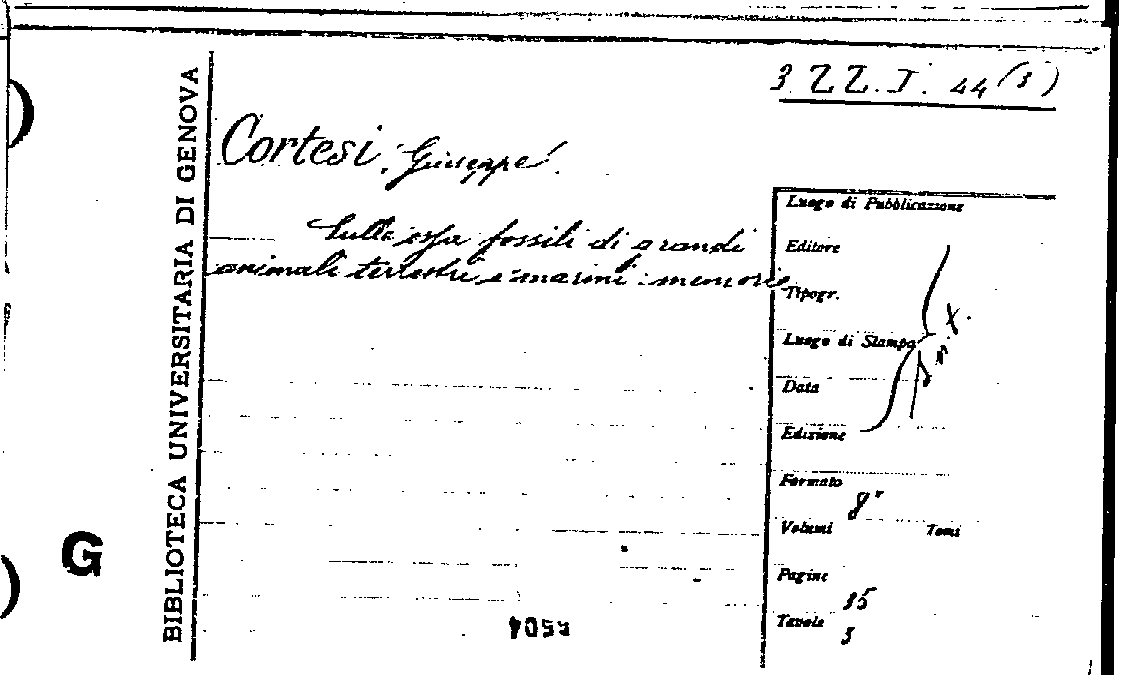 3 ZZ. I. 44 (3)
BIBLIOTECA UNIVERSITARIA DI GENOVA
G
Cortesi, Giuseppe.
Sulle ossa fossili di grandi
animali terrestri e marini: memorie
Luogo di Pubblicazione
Editore
Tipogr.
Luogo di Stampa
Data
Edizione
Formato 8°
Volumi Tomi
Pagine 35
Tavole 3